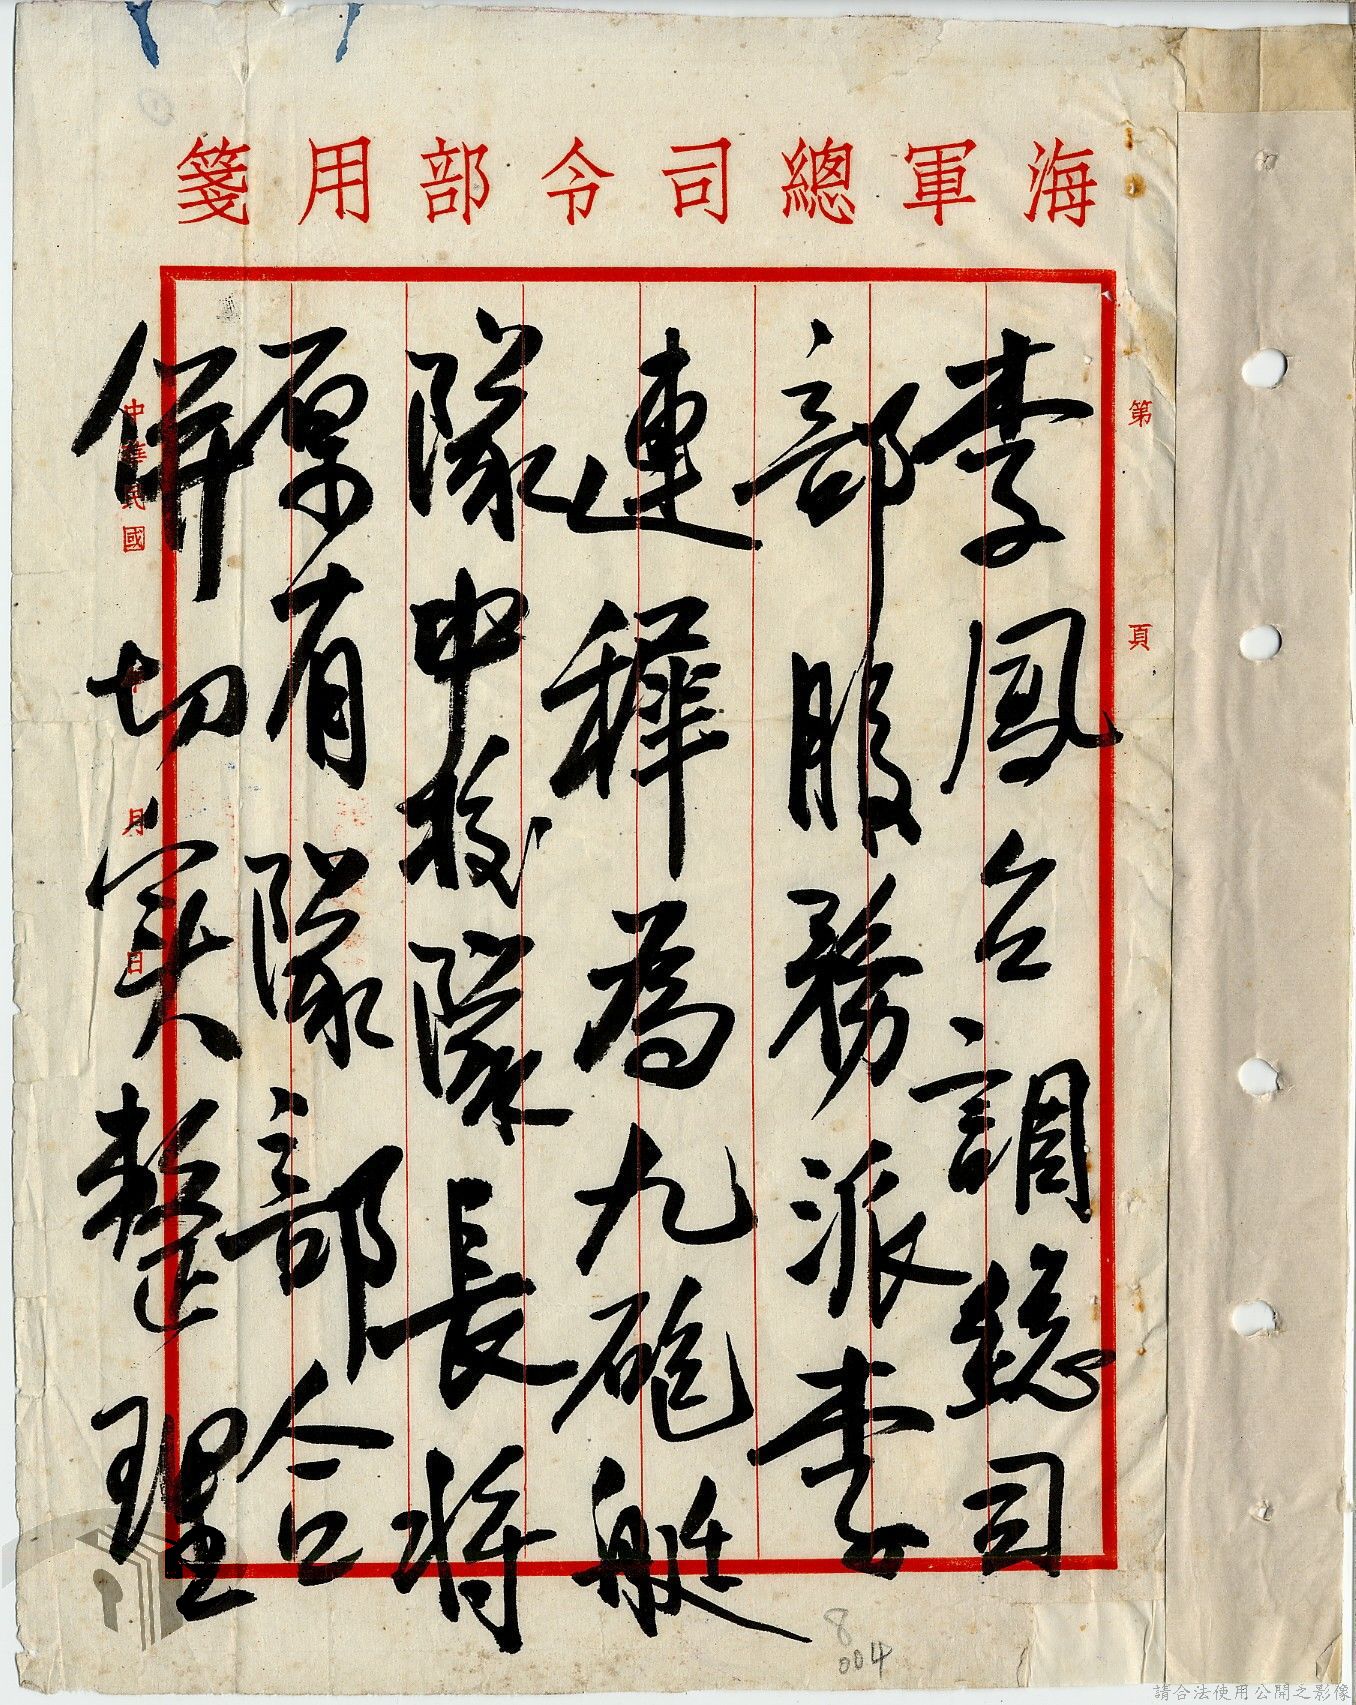 海軍總司令部用箋
第 頁
李鳳台調總司
部服務派李
連穉為九砲艇
隊中校隊長將
原有隊部合
併切實整理
中華民國 年 月 日
8
004
請合法使用公開之影像